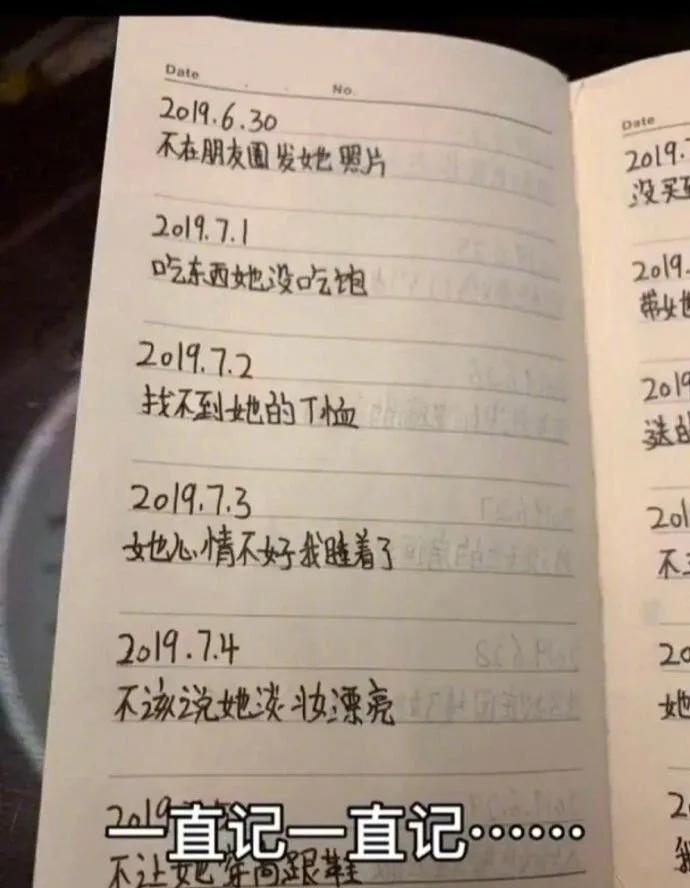 Date
No.
2019.6.30
不在朋友圈发她照片
2019.7.1
吃东西她没吃饱
2019.7.2
找不到她的T恤
2019.7.3
她心情不好我睡着了
2019.7.4
不该说她淡妆漂亮
2019.
不让她穿高跟鞋
一直记一直记……
Date
2019.7
没买到
2019.
带她
2019
送的
201
不
20
她
2
我